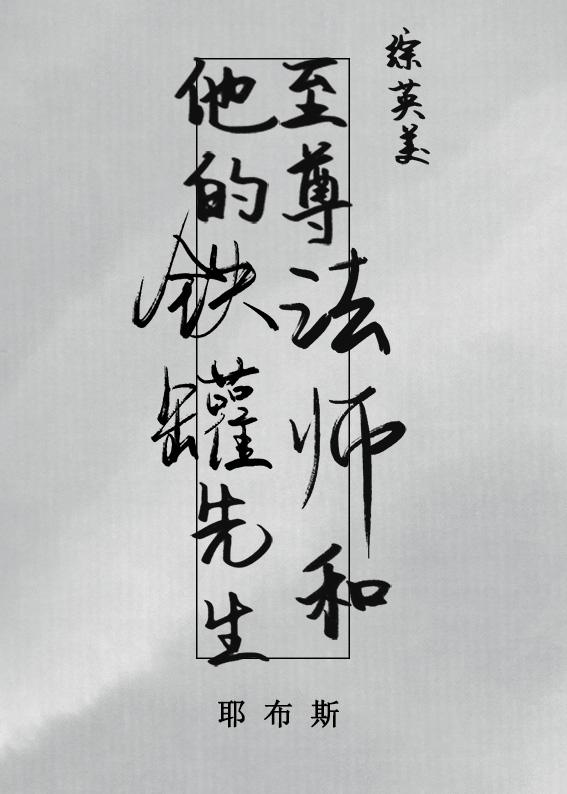 综英美
至尊法师和
他的铁罐先生
耶布斯